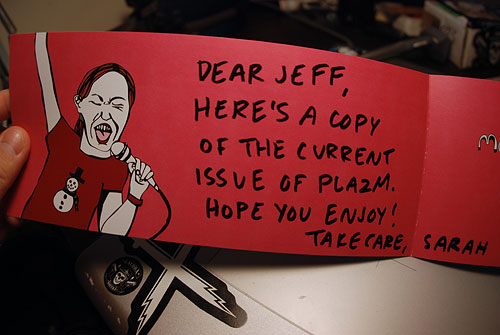 DEAR JEFF,
HERE'S A COPY
OF THE CURRENT
ISSUE OF PLAZM.
HOPE YOU ENJOY!
TAKE CARE, SARAH